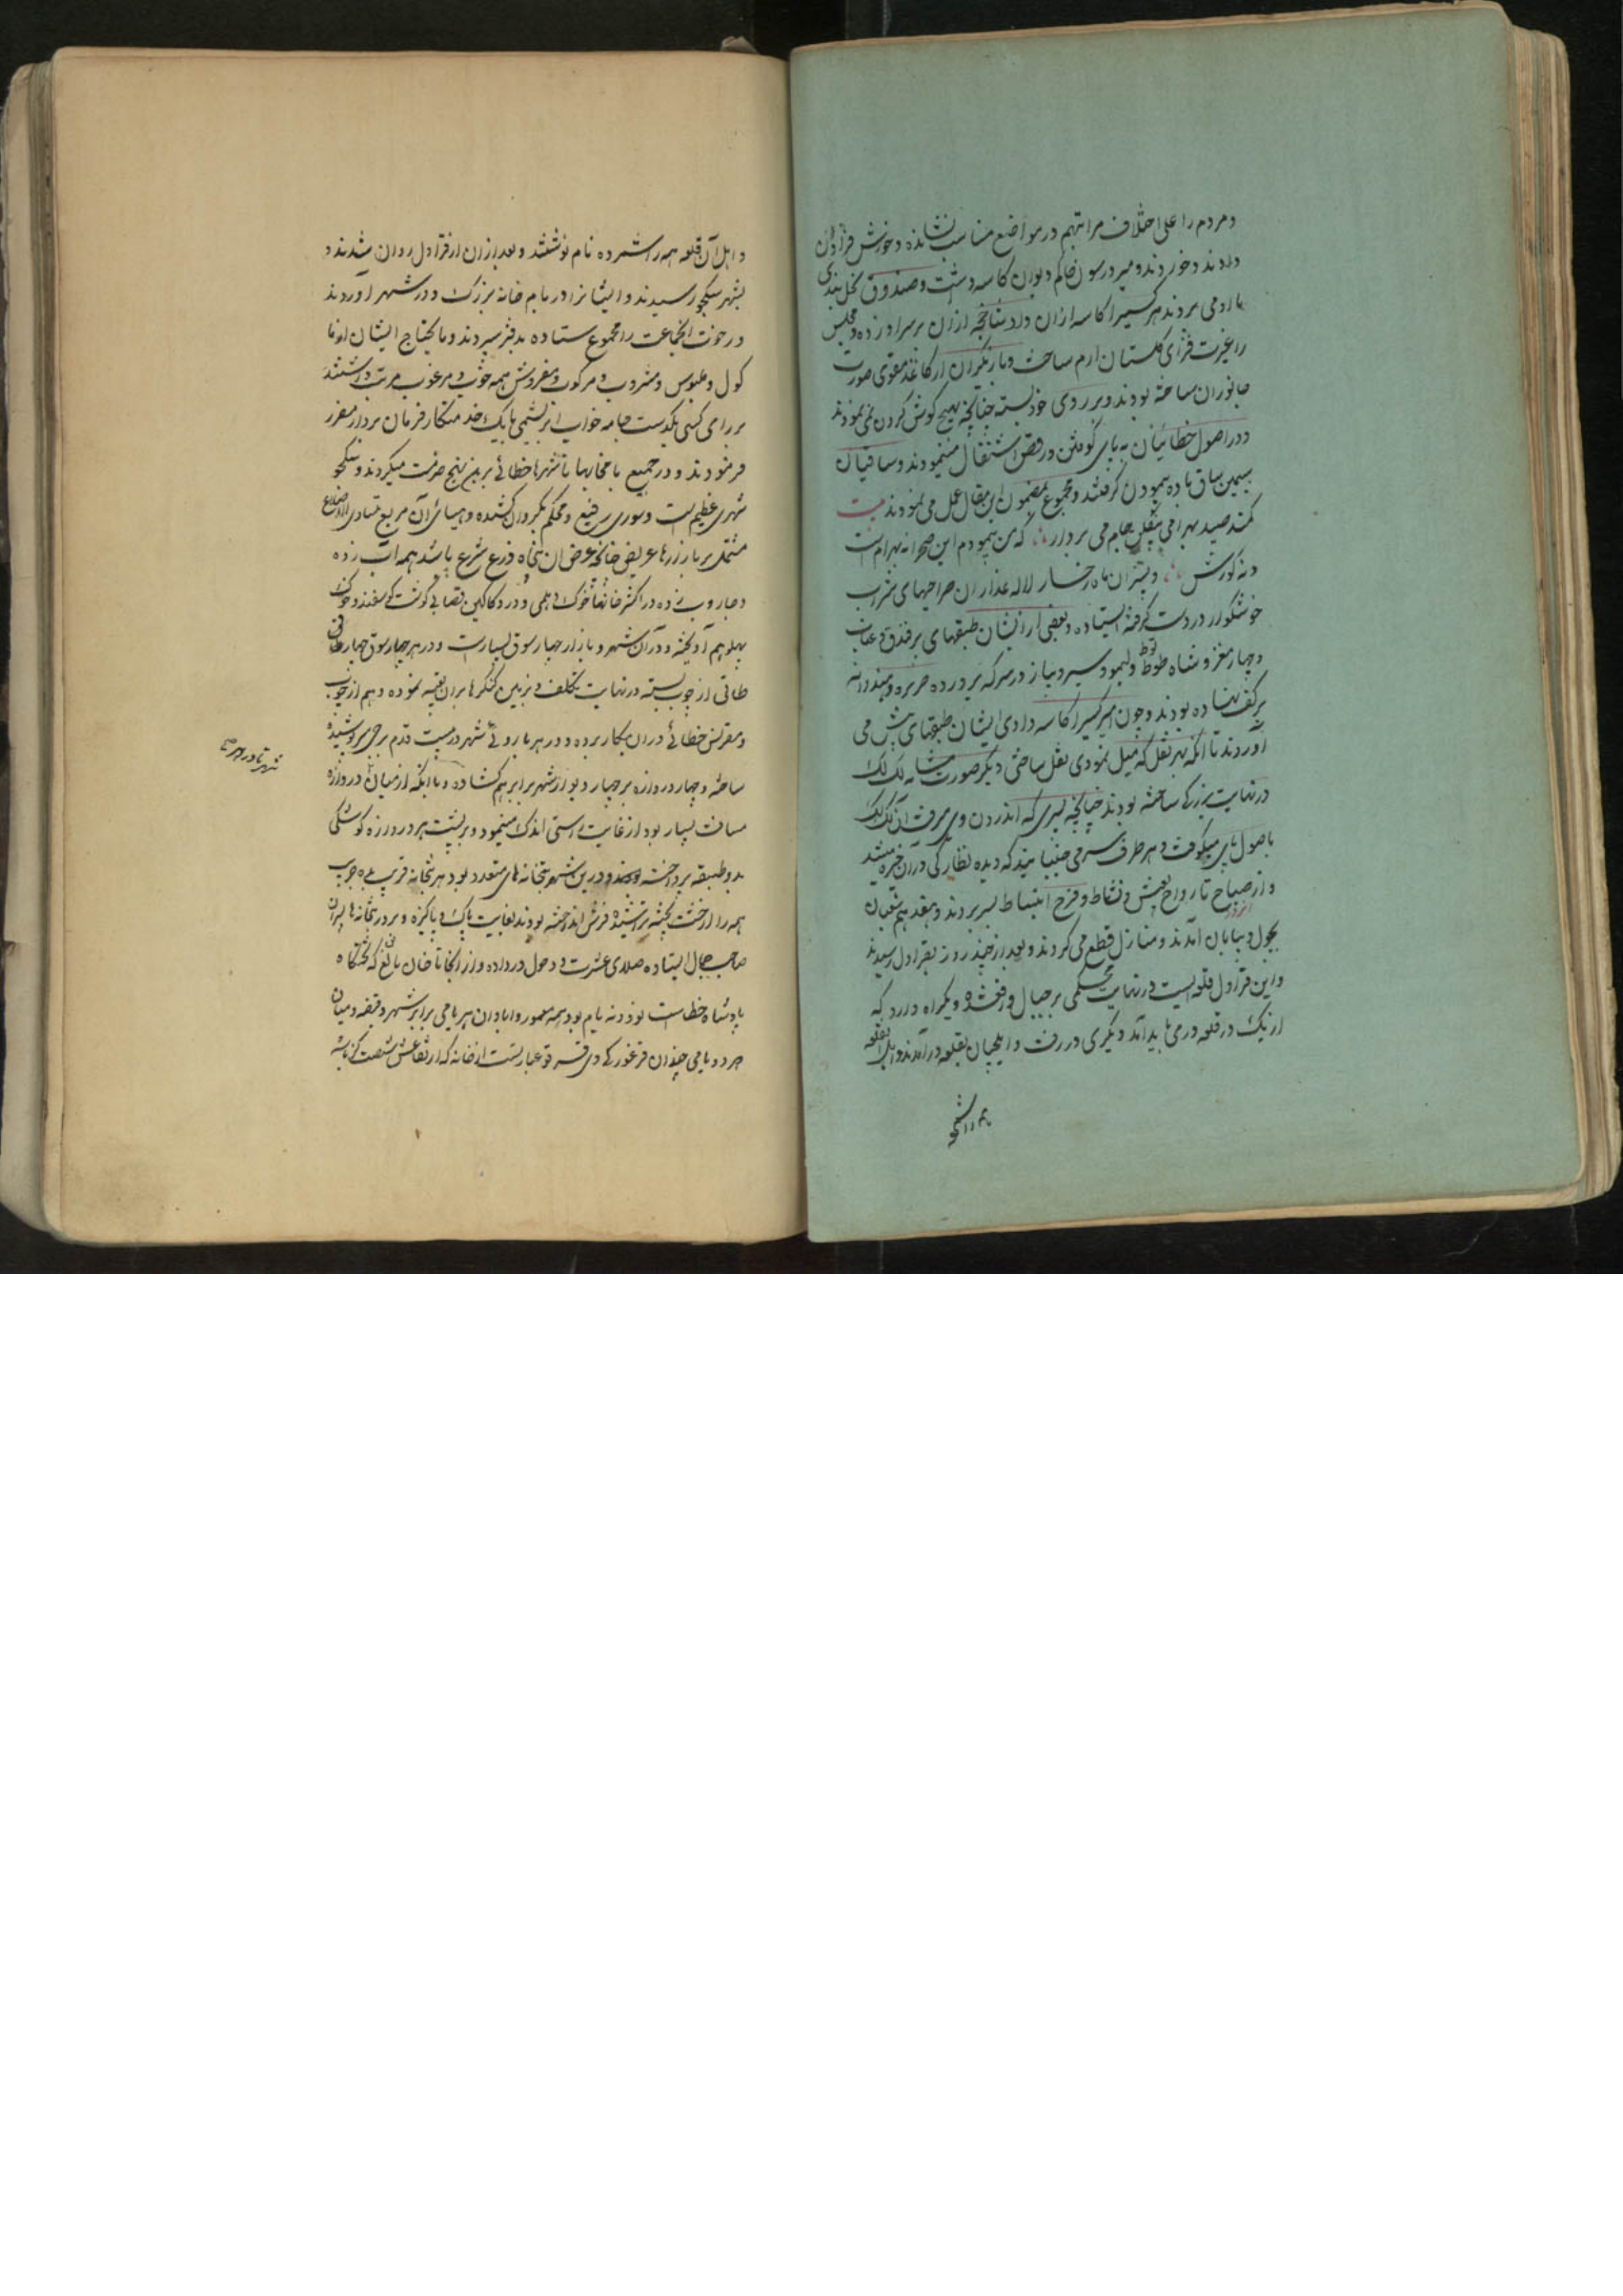 و مردم را علی اختلاف مراتبهم در مواضع مناسب نشانده و خورش فراوان
دادند و خوردند و میر و رسول حاکم دیوان کاسه داشت و صندوق نخل بندی
با او می بردند هر کسیرا کاسه ازان داد شاخچه ازان بر سر او زده و مجلس
را غیرت فزای گلستان ارم ساخت و بازیگران از کاغذ مقوی صورت
جانوران ساخته بودند و بر روی خود بسته چنانچه هیچ گوش گردن نمی نمودند
و در اصول خطائیان به پای کوفتن و رقص اشتغال مینمودند و ساقیان
سیمین ساق باده پیمودن گرفتند و مجموع بمضمون این مقال عمل می نمودند بیت
کمند صید بهرامی بیفکن جام می بردار که من پیمودم این صحرا نه بهرام است
و نه گورش و پسران ماه رخسار لاله عذاران صراحیهای شراب
خوشگوار در دست گرفته ایستاده و بعضی از ایشان طبقهای پر فندق و عناب
و چهار مغز و شاه بلوط و لیمو و سیر و پیاز در سرکه پرورده خربزه و هندوانه
بر کف نهاده بودند و چون امیر کسیرا کاسه دادی ایشان طبقهای پیش می
آوردند تا آنکه بهر نقل که میل نمودی نقل ساختی و دیگر صورت مشابه لک لک
در نهایت بزرگی ساخته بودند چنانچه پسری که اندرون وی میرفت آن لک لک
باصول پای میکوفت و هر طرف سر می جنبانید که دیده نظارگی در آن خیره میشد
و از صباح تا رواح بعیش و نشاط و فرح انبساط بسر بردند و هفدهم شعبان
بچول و بیابان آمدند و منازل قطع می کردند و بعد از چند روز بقراول رسیدند
و این قراول قلعه ایست در نهایت محکمی بر جبال واقع شده و یکراه دارد که
از یک در قلعه در می باید آمد و دیگری در رفت و ایلچیان بقلعه در آمدند و اهل قلعه
و اهل آن قلعه همه را شمرده نام نوشتند و بعد ازان از قراول روان شدند و
بشهر سکجو رسیدند و ایشانرا در یام خانه بزرگ و در شهر آوردند
و رخوت انجماعت را مجموع ستاده بدفتر سپردند و ما یحتاج ایشان از ما
کول و ملبوس و مشروب و مرکوب و مفروش همه خوب و مرغوب مرتب داشتند
برای کسی یکدست جامه خواب ابریشمی با یک خدمتکار فرمان بردار مقرر
فرمودند و در جمیع یامخانها تا شهرها خطائی برین نهج خدمت میکردند و سکجو
شهری عظیم است و سوری رفیع و محکم بگرد وی کشیده و هیأت آن مربع متساوی الاضلاع
مشتمل بر بازارها عریض چنانچه عرض ان پنجاه ذرع شرع باشد همه آب زده
و جاروب زده در اکثر خانها خوک اهلی و در دکاکین قصابی گوشت گوسفند و خوک
پهلو هم آویخته و در آن شهر و بازار چهار سوق بسیارست و در هر چهار سوق چهار طاقی
طاقی از چوب بسته در نهایت تکلف و تزیین کنگرها بران تعبیه نموده و هم از چوب
و مقرنس خطائی دران بکار برده و در هر باروئی شهر در بیست قدم برجی سر پوشیده
ساخته و چهار دروازه بر چهار دیوار شهر برابر هم گشاده و با آنکه از میان دروازه
مسافت بسیار بود از غایت راستی اندک مینمود و بر پشت هر دروازه کوشکی
بدو طبقه پرداخته بودند و درین شهر بتخانه های متعدد بود هر بتخانه قریب بده جریب
همه را از خشت پخته تراشیده فرش انداخته بودند بغایت پاک و پاکیزه و بر در بتخانه ها پسران
صاحب جمال ایستاده صلای عشرت و دخول در داده و از انجا تا خان بالغ که تختگاه
پادشاه خطاست نود و نه یام بود همه معمور و ابادان هر یامی برابر شهر و قصبه و میان
هر دو یامی چندان قرغو و کی دی فو قرغو عبارتست از خانه که ارتفاعش شصت گز باشد